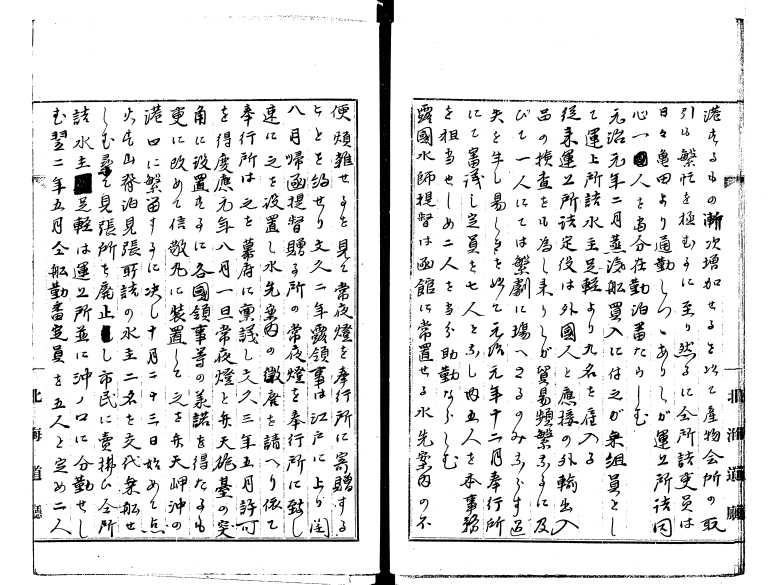 港するもの漸次増加せるを以て産物会所の取
引は繁忙を極むるに至り然るに仝所詰吏員は
日々亀田より通勤しつゝありしが運上所詰同
心一人を当分在勤泊番たらしむ
元治元年二月蒸汽船買入に付之が乗組員とし
て運上所詰水主足軽より九名を雇入る
従来運上所詰定役は外國人と應接の外輸出入
品の検査をも為し来りしが貿易頻繁なるに及
びて一人にては繁劇に堪へざるのみならず過
失を生し易しとを以て元治元年十二月奉行所
にて審議し定員を七人とし内五人を本事務
を担当せしめ二人を当分助勤ならしむ
露國水師提督は函館に常置せる水先案内の不
便頗難せるを見て常夜燈を奉行所に寄贈する
ことを約せり文久二年露領事は江戸に上り閏
八月帰函提督贈る所の常夜燈を奉行所に致し
速に之を設置し水先案内の徴廃を請へり依て
奉行所は之を幕府に稟議し文久三年五月許可
を得慶應元年八月一旦常夜燈と弁天砲基の突
角に設置するに各國領事等の美諾を得たるも
更に改めて信敬丸に装置して之を弁天岬沖の
港口に繋留するに決し十月二十三日始めて点
火す山背泊見張所詰の水主二名を交代乗船せ
しむ尋て見張所を廃止し市民に賣拂ひ仝所
詰水主足軽は運上所並に沖ノ口に分勤せし
む翌二年五月仝船勤番定員を五人と定め二人
北海道廳
北海道廳